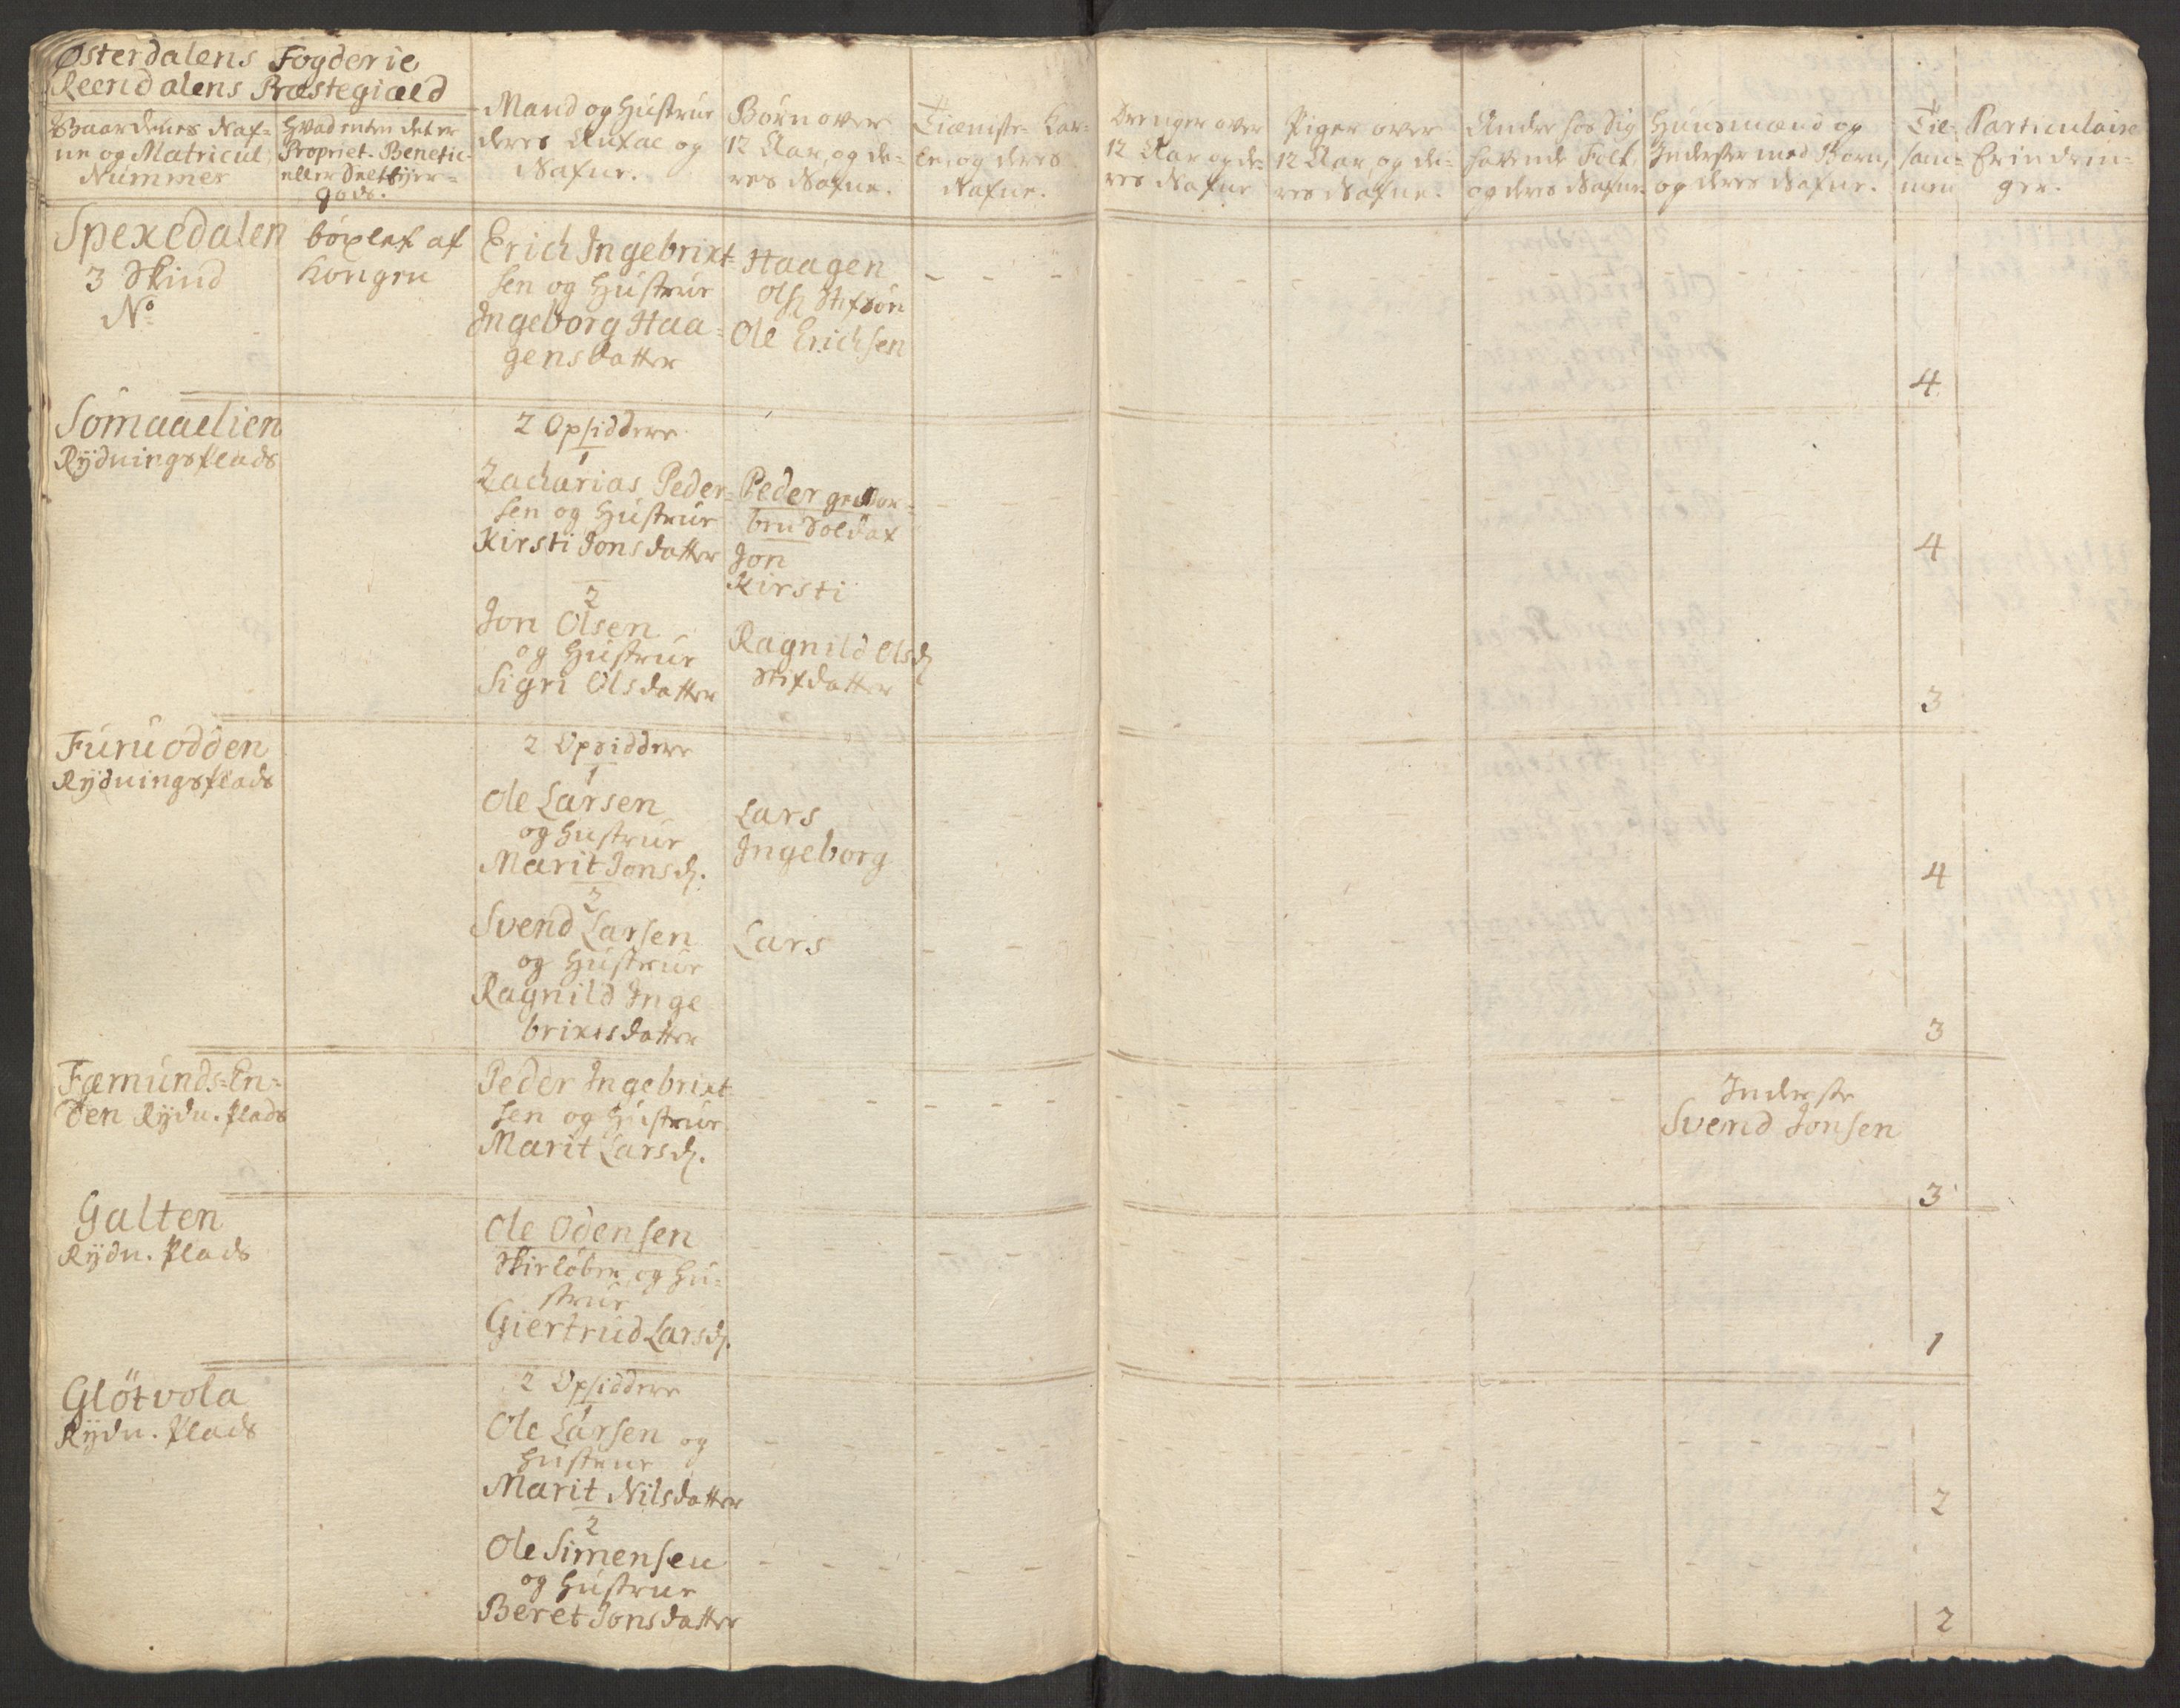 Østerdalens Fogderie
Reendalens Præstegiæld
Gaardenes Naf-
ne og Matricul
Nummer
Hvad enten det er
Propriet. Benefic-
eller Selvejer-
gods.
Mand og Hustrue
deres Antal og
Nafne.
Børn over
12 Aar, og de-
res Nafne.
Tieniste-Kar-
le, og deres
Nafne.
Drenger over
12 Aar og de-
res Nafne
Piger over
12 Aar, og de-
res Nafne.
Andre hos sig
havende Folk
og deres Nafne.
Huusmænd og
Inderster med Børn,
og deres Nafne.
Til-
sam-
men
Particulaire
Erindrin-
ger.
Spexedalen
3 Skind
No
böxlet af
Kongen
Erich Ingebrixt-
sen og Hustrue
Ingeborg Haa-
gensdatter
Haagen
Ols. Stifsön
Ole Erichsen
4
Sömaaelien
Rydningsplads
2 Opsiddere
1
Zacharias Peder-
sen og Hustrue
Kirsti Jonsdatter
Peder gevor-
ben Soldat
Jon
Kirsti
4
2
Jon Olsen
og Hustrue
Sigri Olsdatter
Ragnild Olsd.
Stifdatter
3
Furuodden
Rydningsplads
2 Opsiddere
1
Ole Larsen
og Hustrue
Marit Jonsd.
Lars
Ingeborg
4
2
Svend Larsen
og Hustrue
Ragnild Inge
brixtsdatter
Lars
3
Fæmunds-En-
den Rydn. Plads
Peder Ingebrixt
sen og Hustrue
Marit Larsd.
Inderste
Svend Jonsen
3
Galten
Rydn. Plads
Ole Odensen
Skielöber og Hu-
strue
Giertrud Larsd.
1
Glötvola
Rydn. Plads
2 Opsiddere
1
Ole Larsen og
Hustrue
Marit Nilsdatter
2
2
Ole Simensen
og Hustrue
Beret Jonsdatter
2